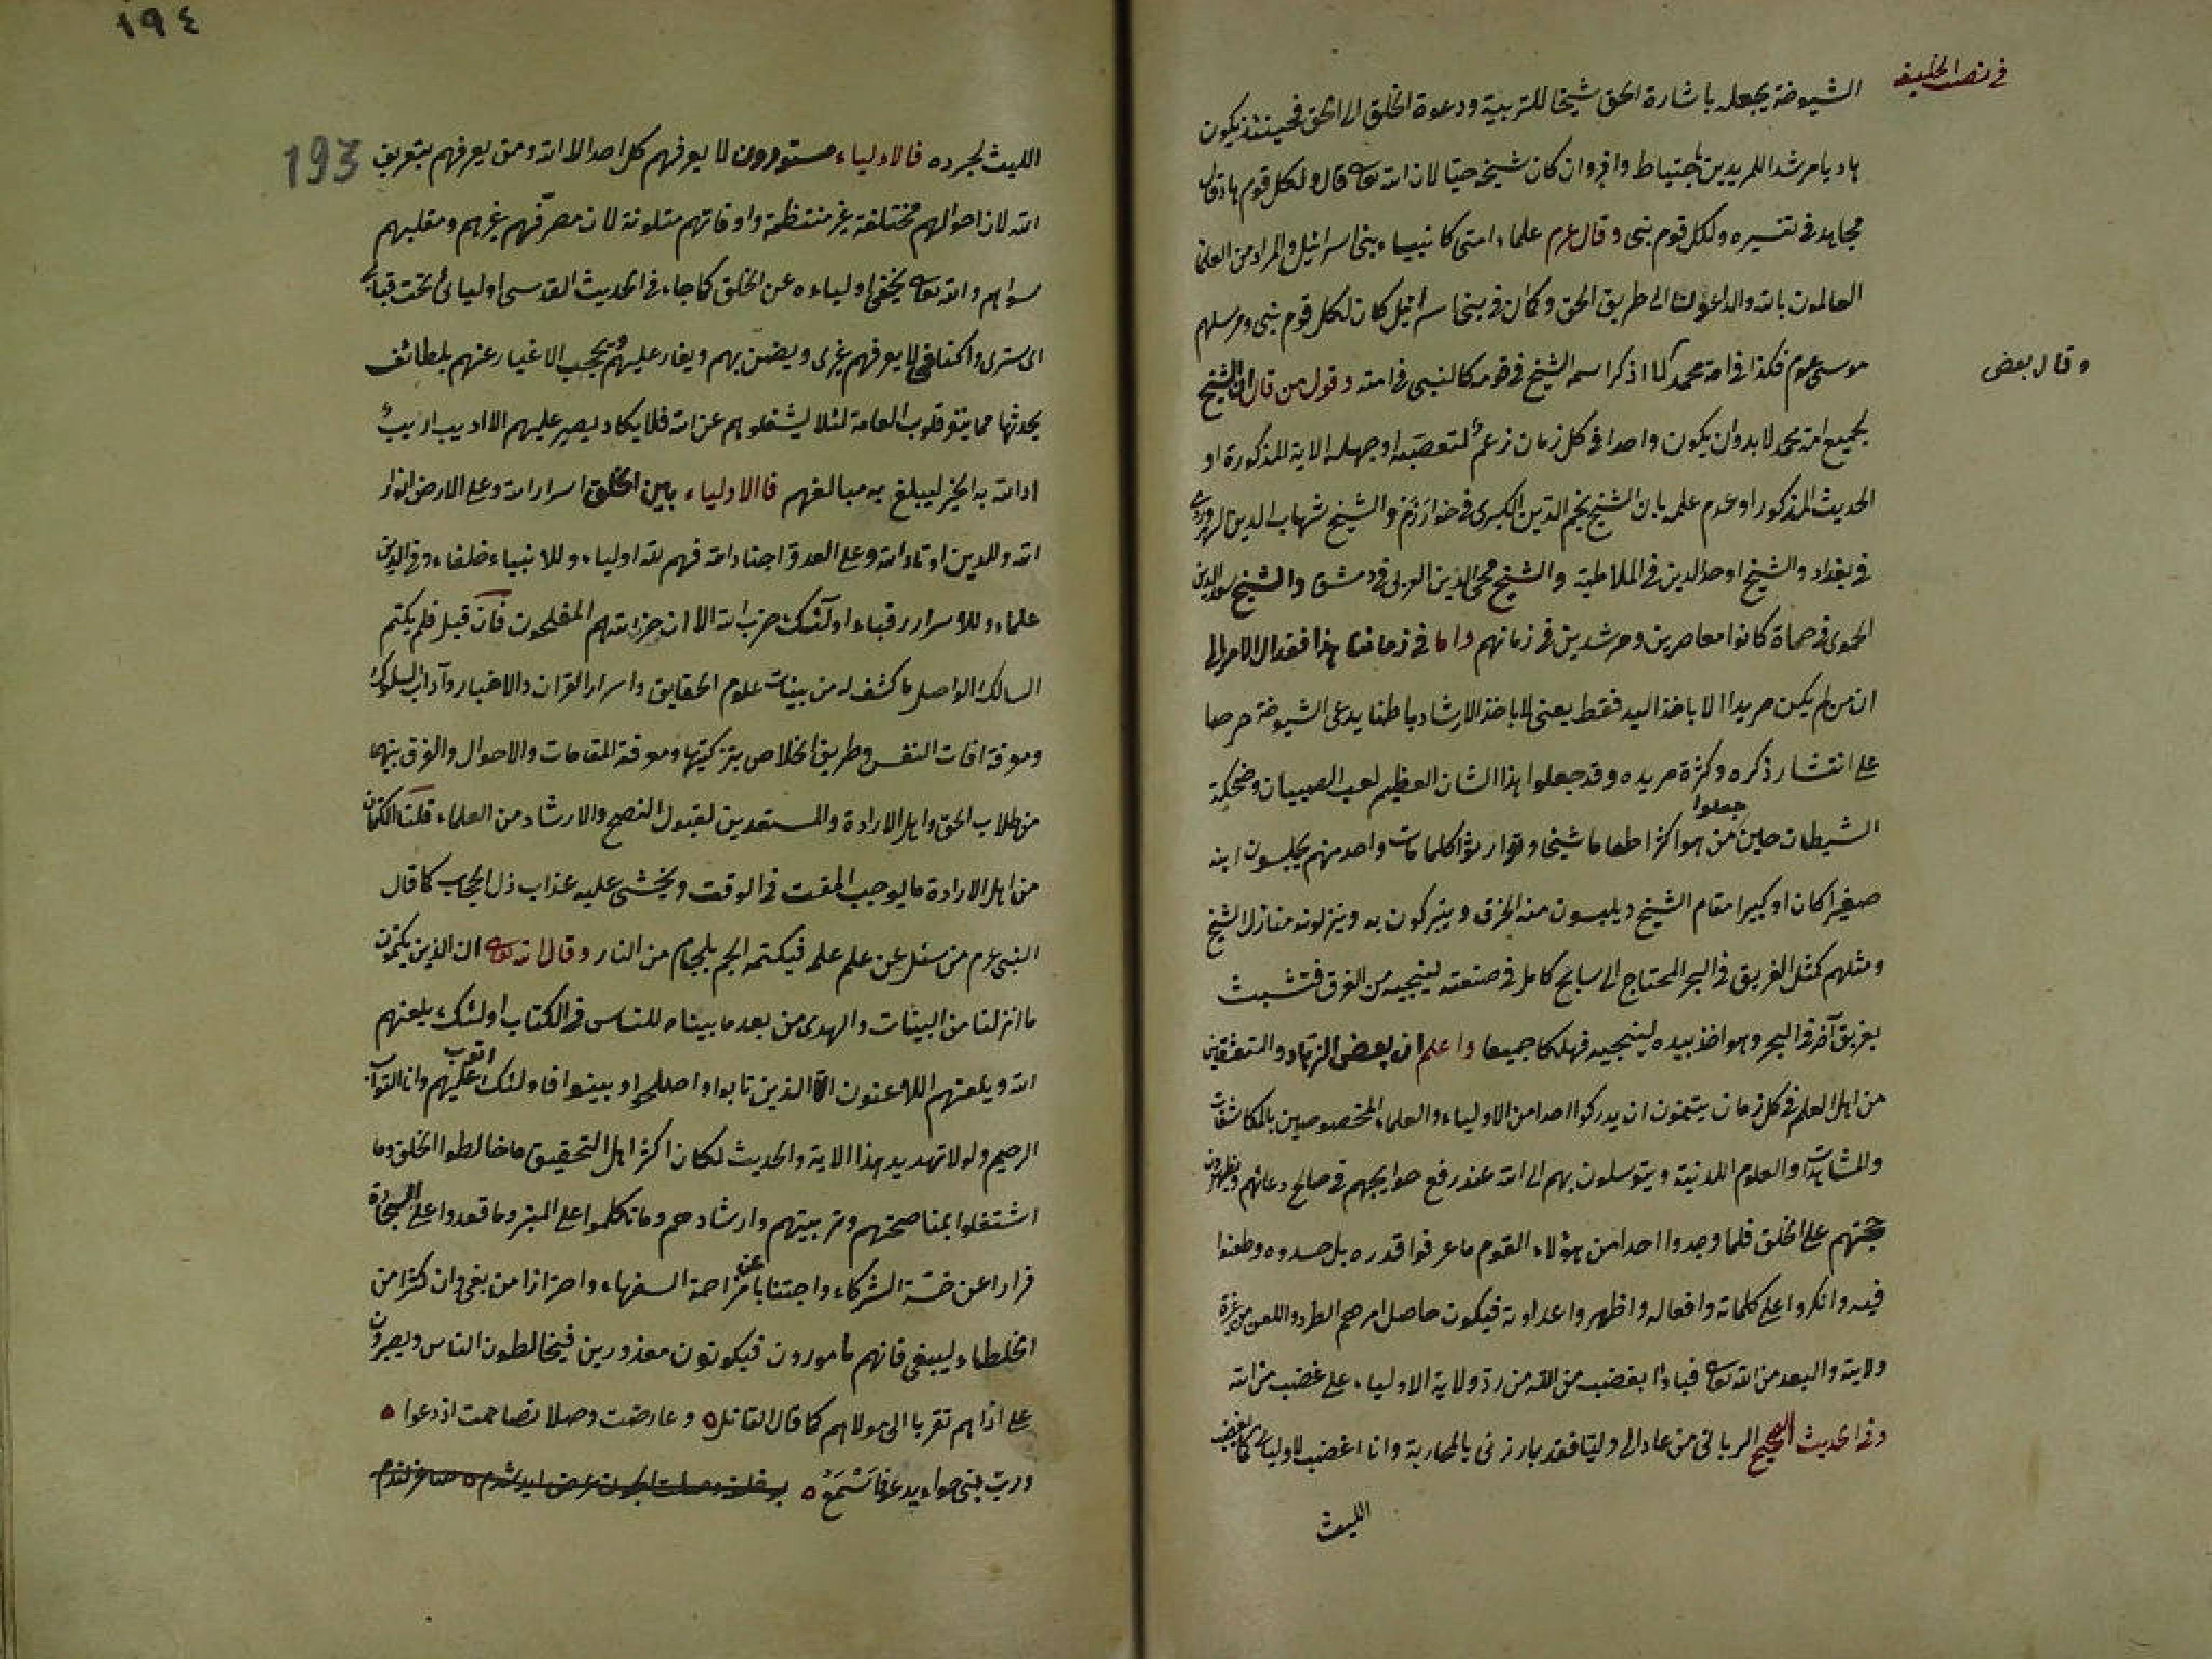 في نصب الخليفة
الشيوخة يجعله باشارة الحق شيخا للتربية ودعوة الخلق الى الحق فحينئذ يكون
هاديا مرشدا للمريدين باحتياط وافر وان كان شيخه حيا لان الله تعالى قال ولكل قوم هاد قال
مجاهد في تفسيره ولكل قوم نبي وقال عم علماء امتي كانبياء بني اسرائيل والمراد من العلماء
العالمون بالله والداعون الى طريق الحق وكان في بني اسرائيل كان لكل قوم نبي ومرسلهم
موسى عم فكذا في امة محمد كما اذكر اسمه الشيخ في قومه كالنبي في امته وقول من قال ان الشيخ
وقال بعض
لجميع امة محمد لابد وان يكون واحدا في كل زمان زعم لتعصبه او جهله الاية المذكورة او
الحديث المذكور او عدم علمه بان الشيخ نجم الدين الكبرى في خوارزم والشيخ شهاب الدين السهروردي
في بغداد والشيخ اوحد الدين في الملاطية والشيخ محي الدين العربي في دمشق والشيخ سعد الدين
الحموي في حماة كانوا معاصرين ومرشدين في زمانهم واما في زماننا هذا فقد ال الامر الى
ان من لم يكن مريدا الا باخذ اليد فقط يعني لا باخذ الارشاد باطنا يدعى الشيوخة حرصا
على انتشار ذكره وكثرة مريده وقد جعلوا هذا الشان العظيم لعب الصبيان وضحكة
الشيطان حين جعلوا من هو اكثر اطعاما شيخا وتوارثوا كلما مات واحد منهم يجلسون ابنه
صغيرا كان او كبيرا مقام الشيخ ويلبسون منه الخرق ويتبركون به وينزلونه منازل الشيخ
ومثلهم كمثل الغريق في البحر المحتاج الى سابح كامل في صنعته لينجيه من الغرق فتشبث
بغريق آخر في البحر وهو اخذ بيده لينجيه فهلكا جميعا واعلم ان بعض الزهاد والمتعشقين
من اهل العلم في كل زمان يتمنون ان يدركوا احدا من الاولياء والعلماء المخصوصين بالمكاشفات
والمشاهدات والعلوم اللدنية ويتوسلون بهم الى الله عند رفع حوايجهم في صالح دعائهم ويظهرون
حجتهم على الخلق فلما وجدوا احدا من هؤلاء القوم ما عرفوا قدره بل حسدوه وطعنوا
فيه وانكروا على كلماته وافعاله واظهروا عداوته فيكون حاصل امرهم الطرد واللعن من عزة
ولايته والبعد من الله تعالى فباؤا بغضب من الله من رد ولاية الاولياء على غضب من الله
وفي الحديث الصحيح الرباني من عادى لي وليا فقد بارزني بالمحاربة وانا اغضب لاوليائي كما يغضب
الليث
١٩٤
193
الليث لجرده فالاولياء مستورون لا يعرفهم كل احد الا الله ومن يعرفهم بتعريف
الله لان احوالهم مختلفة غير منتظمة واوقاتهم متلونة لان مصرفهم غيرهم ومقلبهم
سواهم والله تعالى يخفي اولياءه عن الخلق كما جاء في الحديث القدسي اوليائي تحت قبابي
اي ستري واكتنافي لا يعرفهم غيري ويضن بهم ويغار عليهم ويحجب الاغيار عنهم بلطائف
يحدثها مما ينفر قلوب العامة لئلا يشغلوهم عن الله فلا يكاد يصير عليهم الا اديب اريب
اراد الله به الخير ليبلغ به مبالغهم فالاولياء بين الخلق اسرار الله وعلى الارض انوار
الله وللدين اوتاد الله وعلى العدو اجناد الله فهم لله اولياء وللانبياء خلفاء وفي الدين
علماء وللاسرار رقباء اولئك حزب الله الا ان حزب الله هم المفلحون فان قيل فلم يكتم
السالك الواصل ما كشف له من بينات علوم الحقايق واسرار القران والاخبار وآداب السلوك
ومعرفة افات النفس وطريق الخلاص بتزكيتها ومعرفة المقامات والاحوال والفرق بينهما
من طلاب الحق واهل الارادة والمستعدين لقبول النصح والارشاد من العلماء قلنا الكتمان
من اهل الارادة ما يوجب المقت في الوقت ويخشى عليه عذاب ذل الحجاب كما قال
النبي عم من سئل عن علم علمه فيكتمه الجم بلجام من النار وقال الله تعالى ان الذين يكتمون
ما انزلنا من البينات والهدى من بعد ما بيناه للناس في الكتاب اولئك يلعنهم
الله ويلعنهم اللاعنون الا الذين تابوا واصلحوا وبينوا فاولئك اتوب عليهم وانا التواب
الرحيم ولولا تهديد هذا الاية والحديث لكان اكثر اهل التحقيق ما خالطوا الخلق وما
اشتغلوا بمناصحتهم وتربيتهم وارشادهم وما تكلموا على المنبر وما قعدوا على السجادة
فرارا عن خسة الشركاء واجتنابا عن مزاحمة السفهاء واحترازا من بغي وان كثيرا من
الخلطاء ليبغي فانهم مامورون فيكونون معذورين فيخالطون الناس ويصبرون
على اذاهم تقربا الى مولاهم كما قال القائل ه وعارضت وصلا تصاممت اذ دعوا ه
ورب بني حواء يدعو فاسمع ه